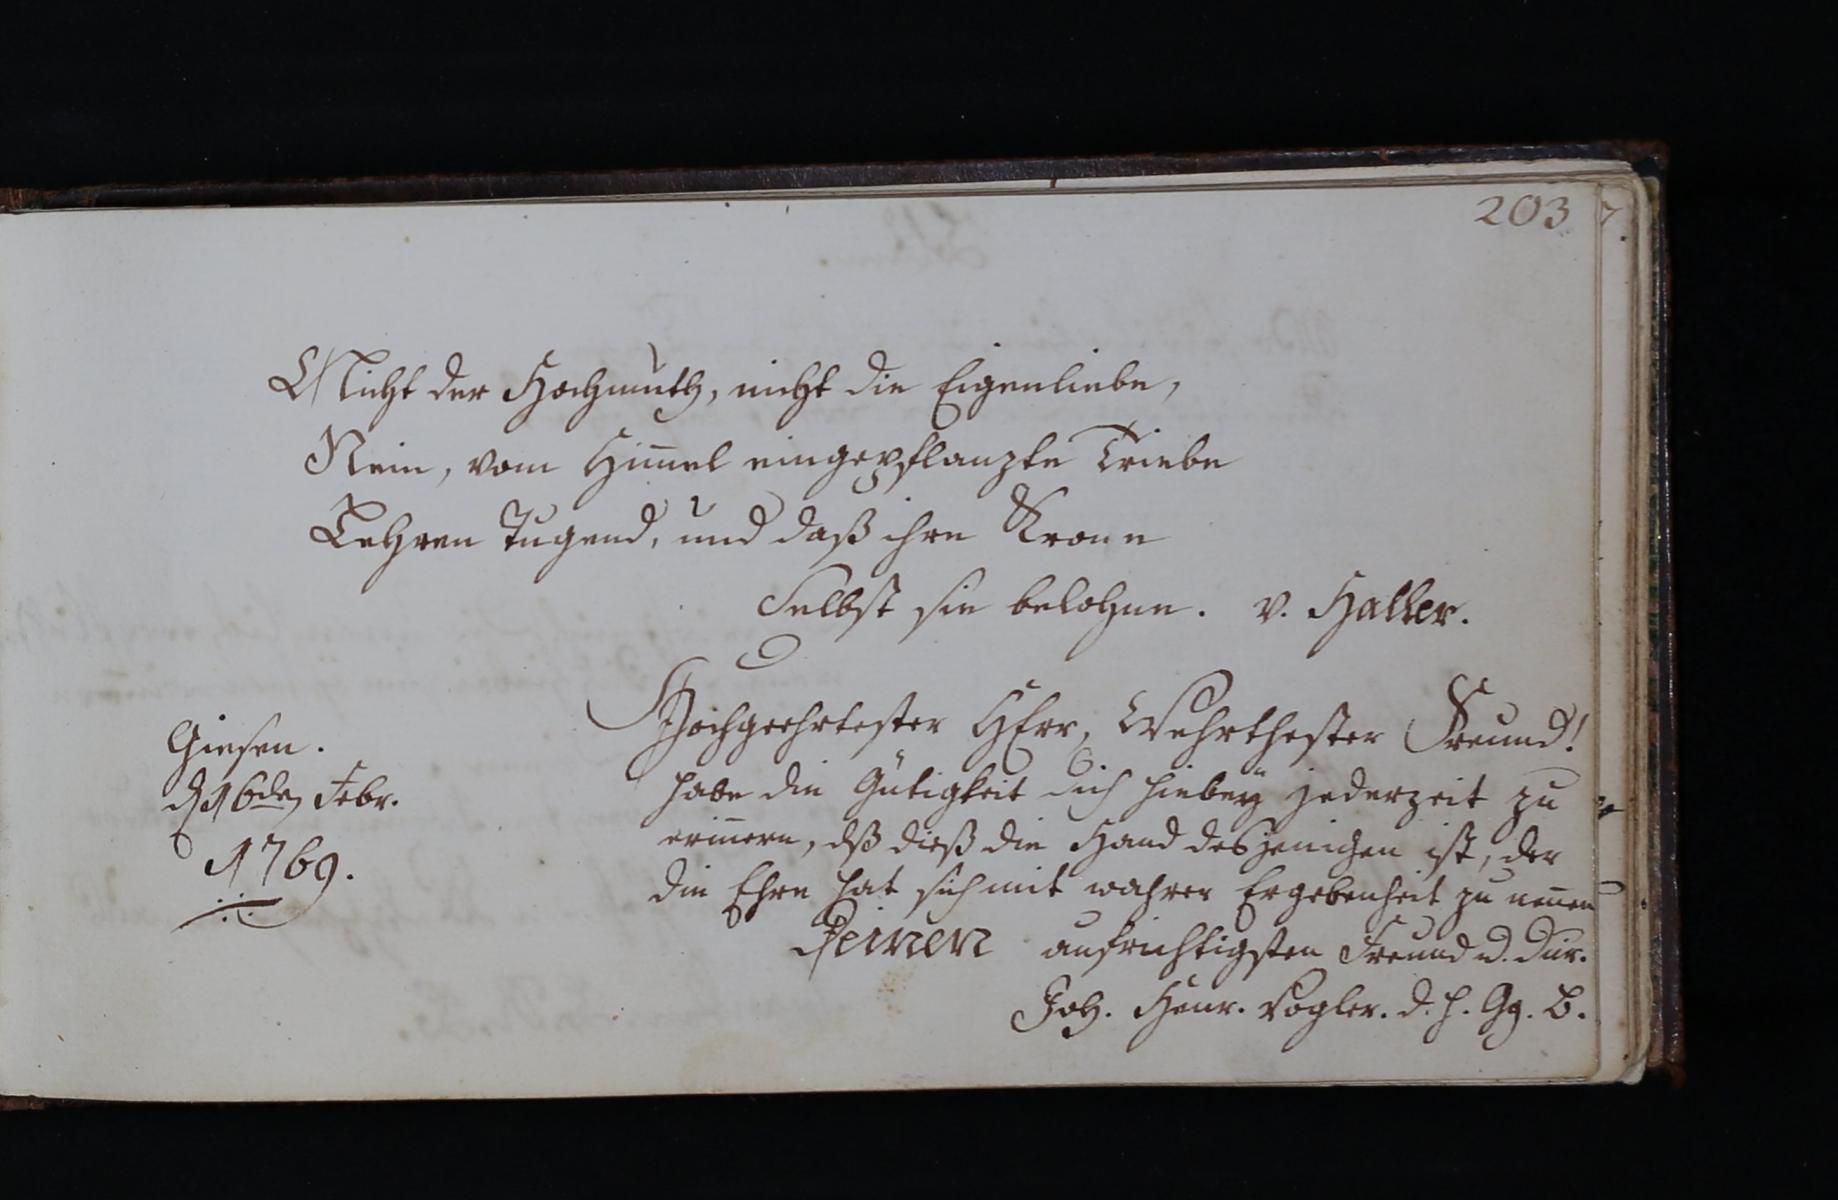 203
Nicht der Hochmuth, nicht die Eigenliebe,
Nein, vom Him̅el eingepflanzte Triebe
Lehren Tugend, und daß ihre Krone
Selbst sie belohne. v. Haller.
Hochgeehrtester HErr, Wehrthester Freund!
habe die Gütigkeit dich hiebeÿ jederzeit zu
erin̅ern, dß dieß die Hand desjenigen ist, der
die Ehre hat sich mit wahrer Ergebenheit zu nen̅en
Deinen aufrichtigsten Freund u. Dnr.
Joh. Henr. Vogler. d. h. Gg. B.
Giesen.
d 16den Febr.
1769.